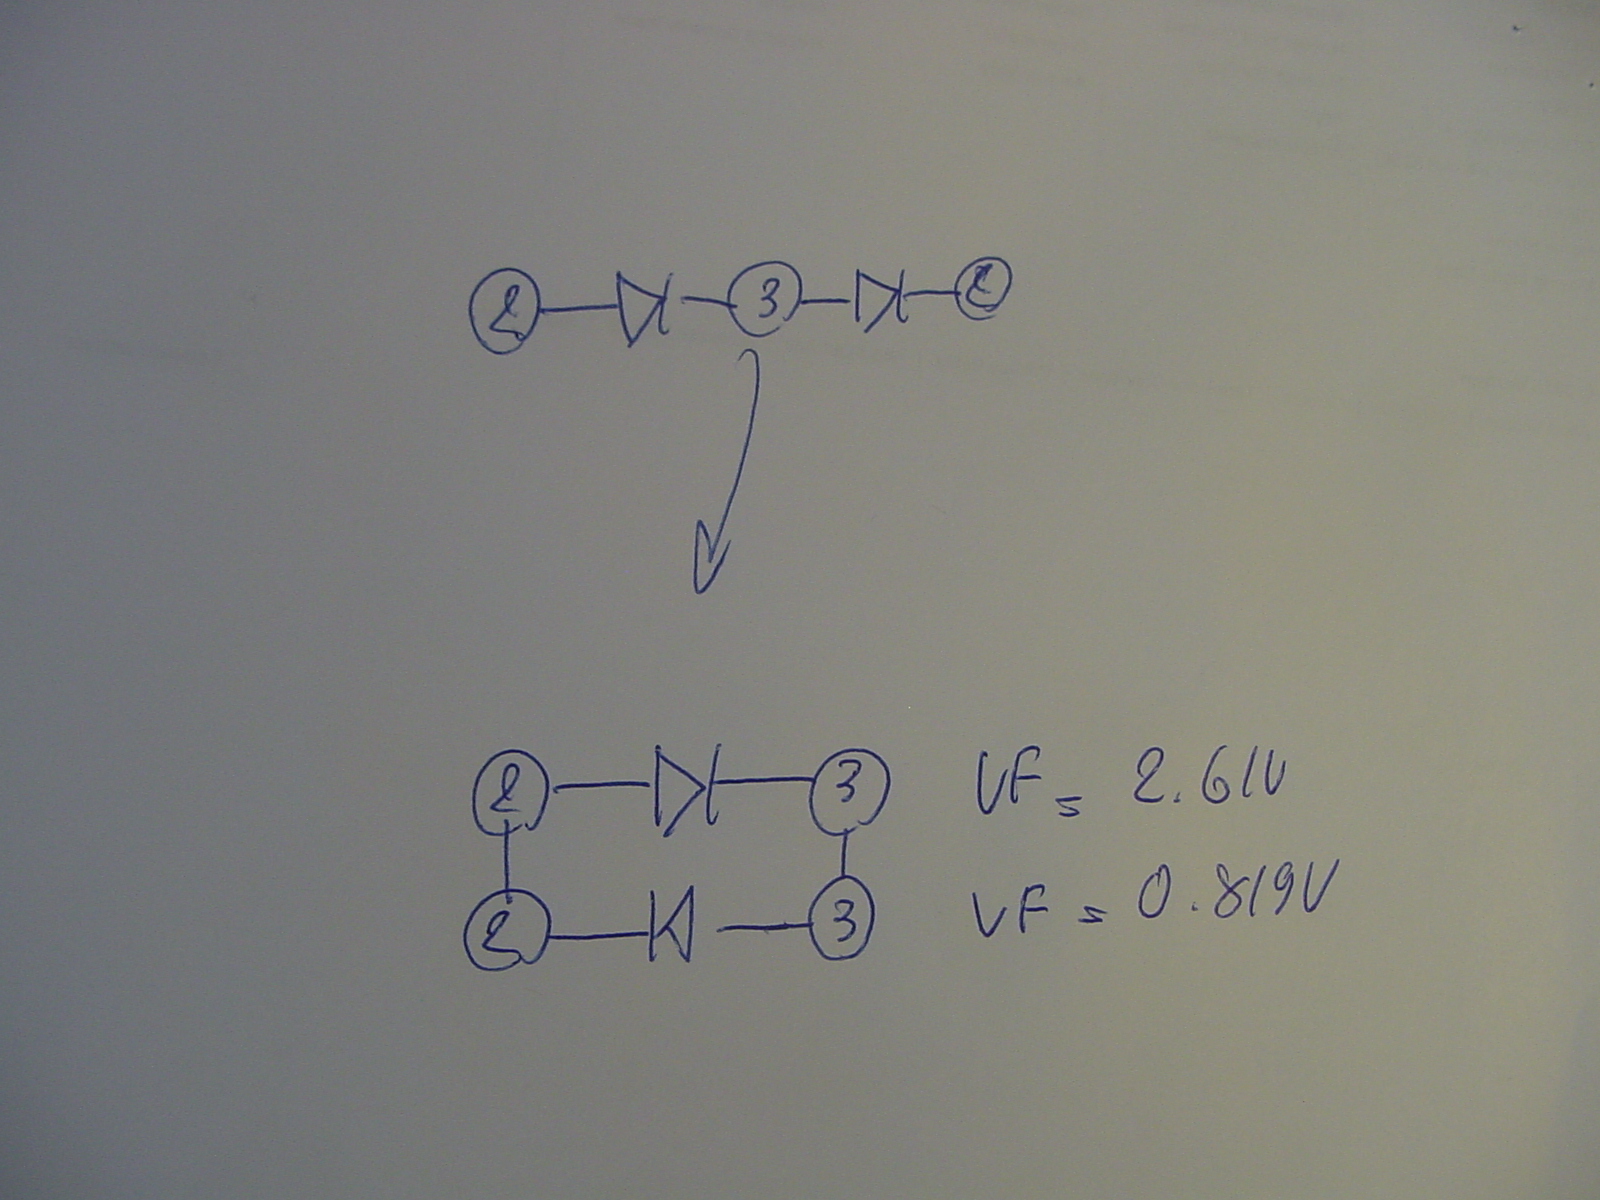 2 3 2
2 3 VF = 2.61V
2 3 VF = 0.819V